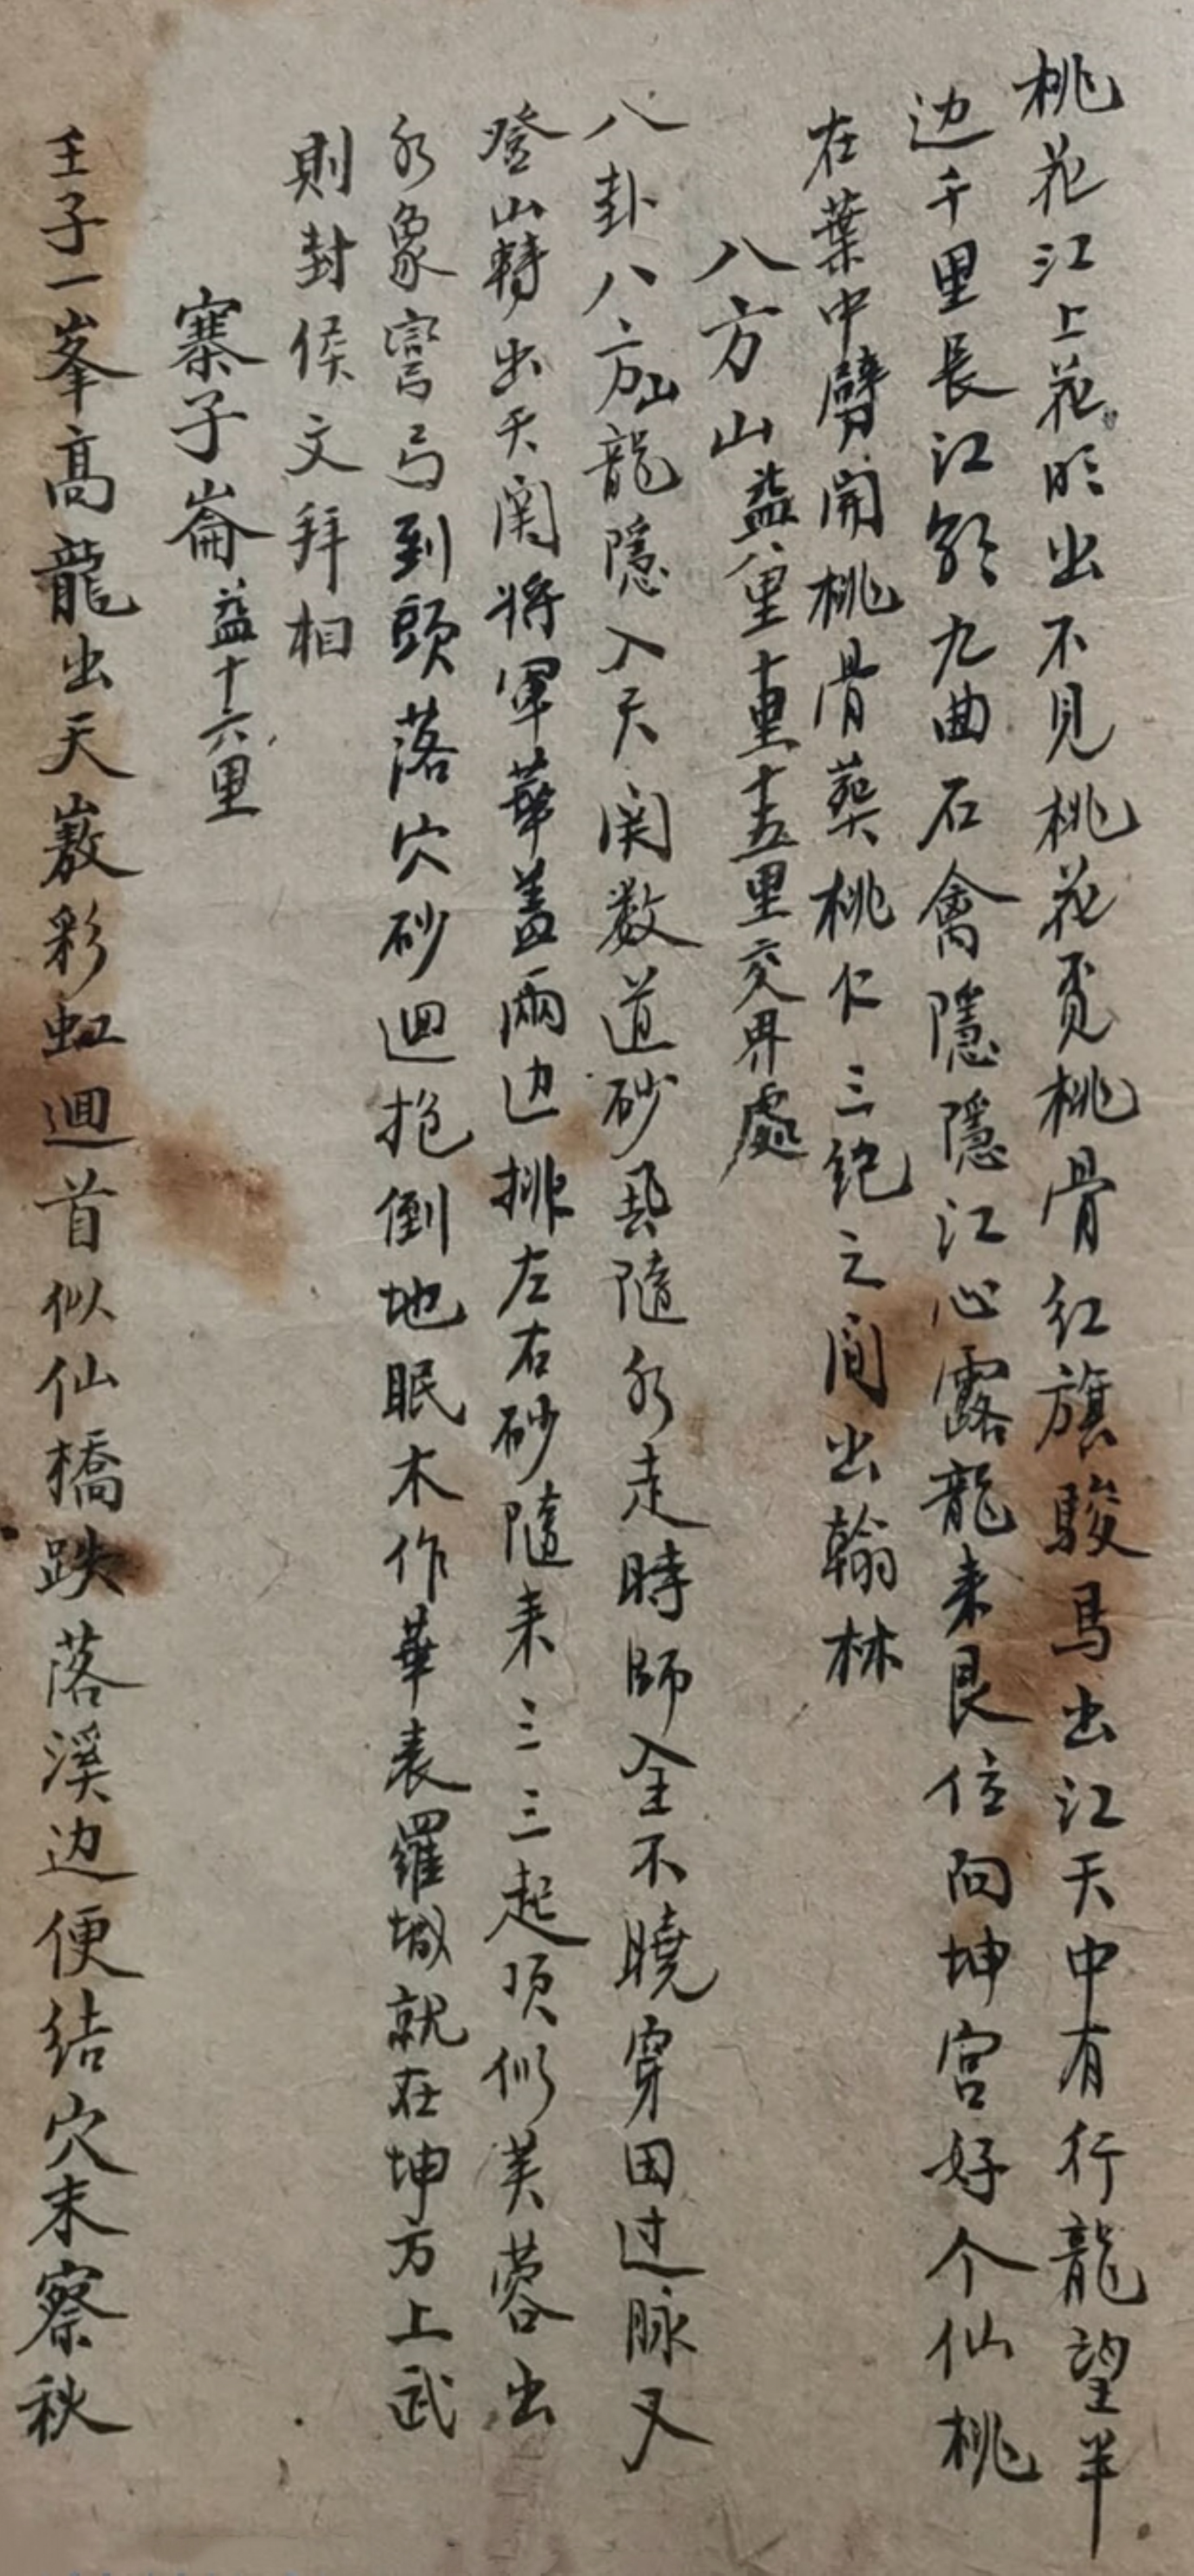 桃花江上花明出不見桃花覓桃骨紅旗駿馬出江天中有行龍望半
边千里長江欲九曲石禽隱隱江心露龍来艮位向坤宮好个仙桃
在葉中劈開桃骨葬桃仁三鉋之间出翰林
八方山益八里十里十五里交界處
八卦八方山龍隱入天関数道砂飛隨水走時師全不曉穿田过脉又
登山轉出天関將軍華盖兩边排左右砂隨来三三起頂似芙蓉出
水象彎弓到頭落穴砂迴抱倒地眠木作華表羅城就在坤方上武
則封侯文拜相
寨子崙益十六里
壬子一峯高龍出天嶽彩虹迴首似仙橋跌落溪边便结穴末察秋